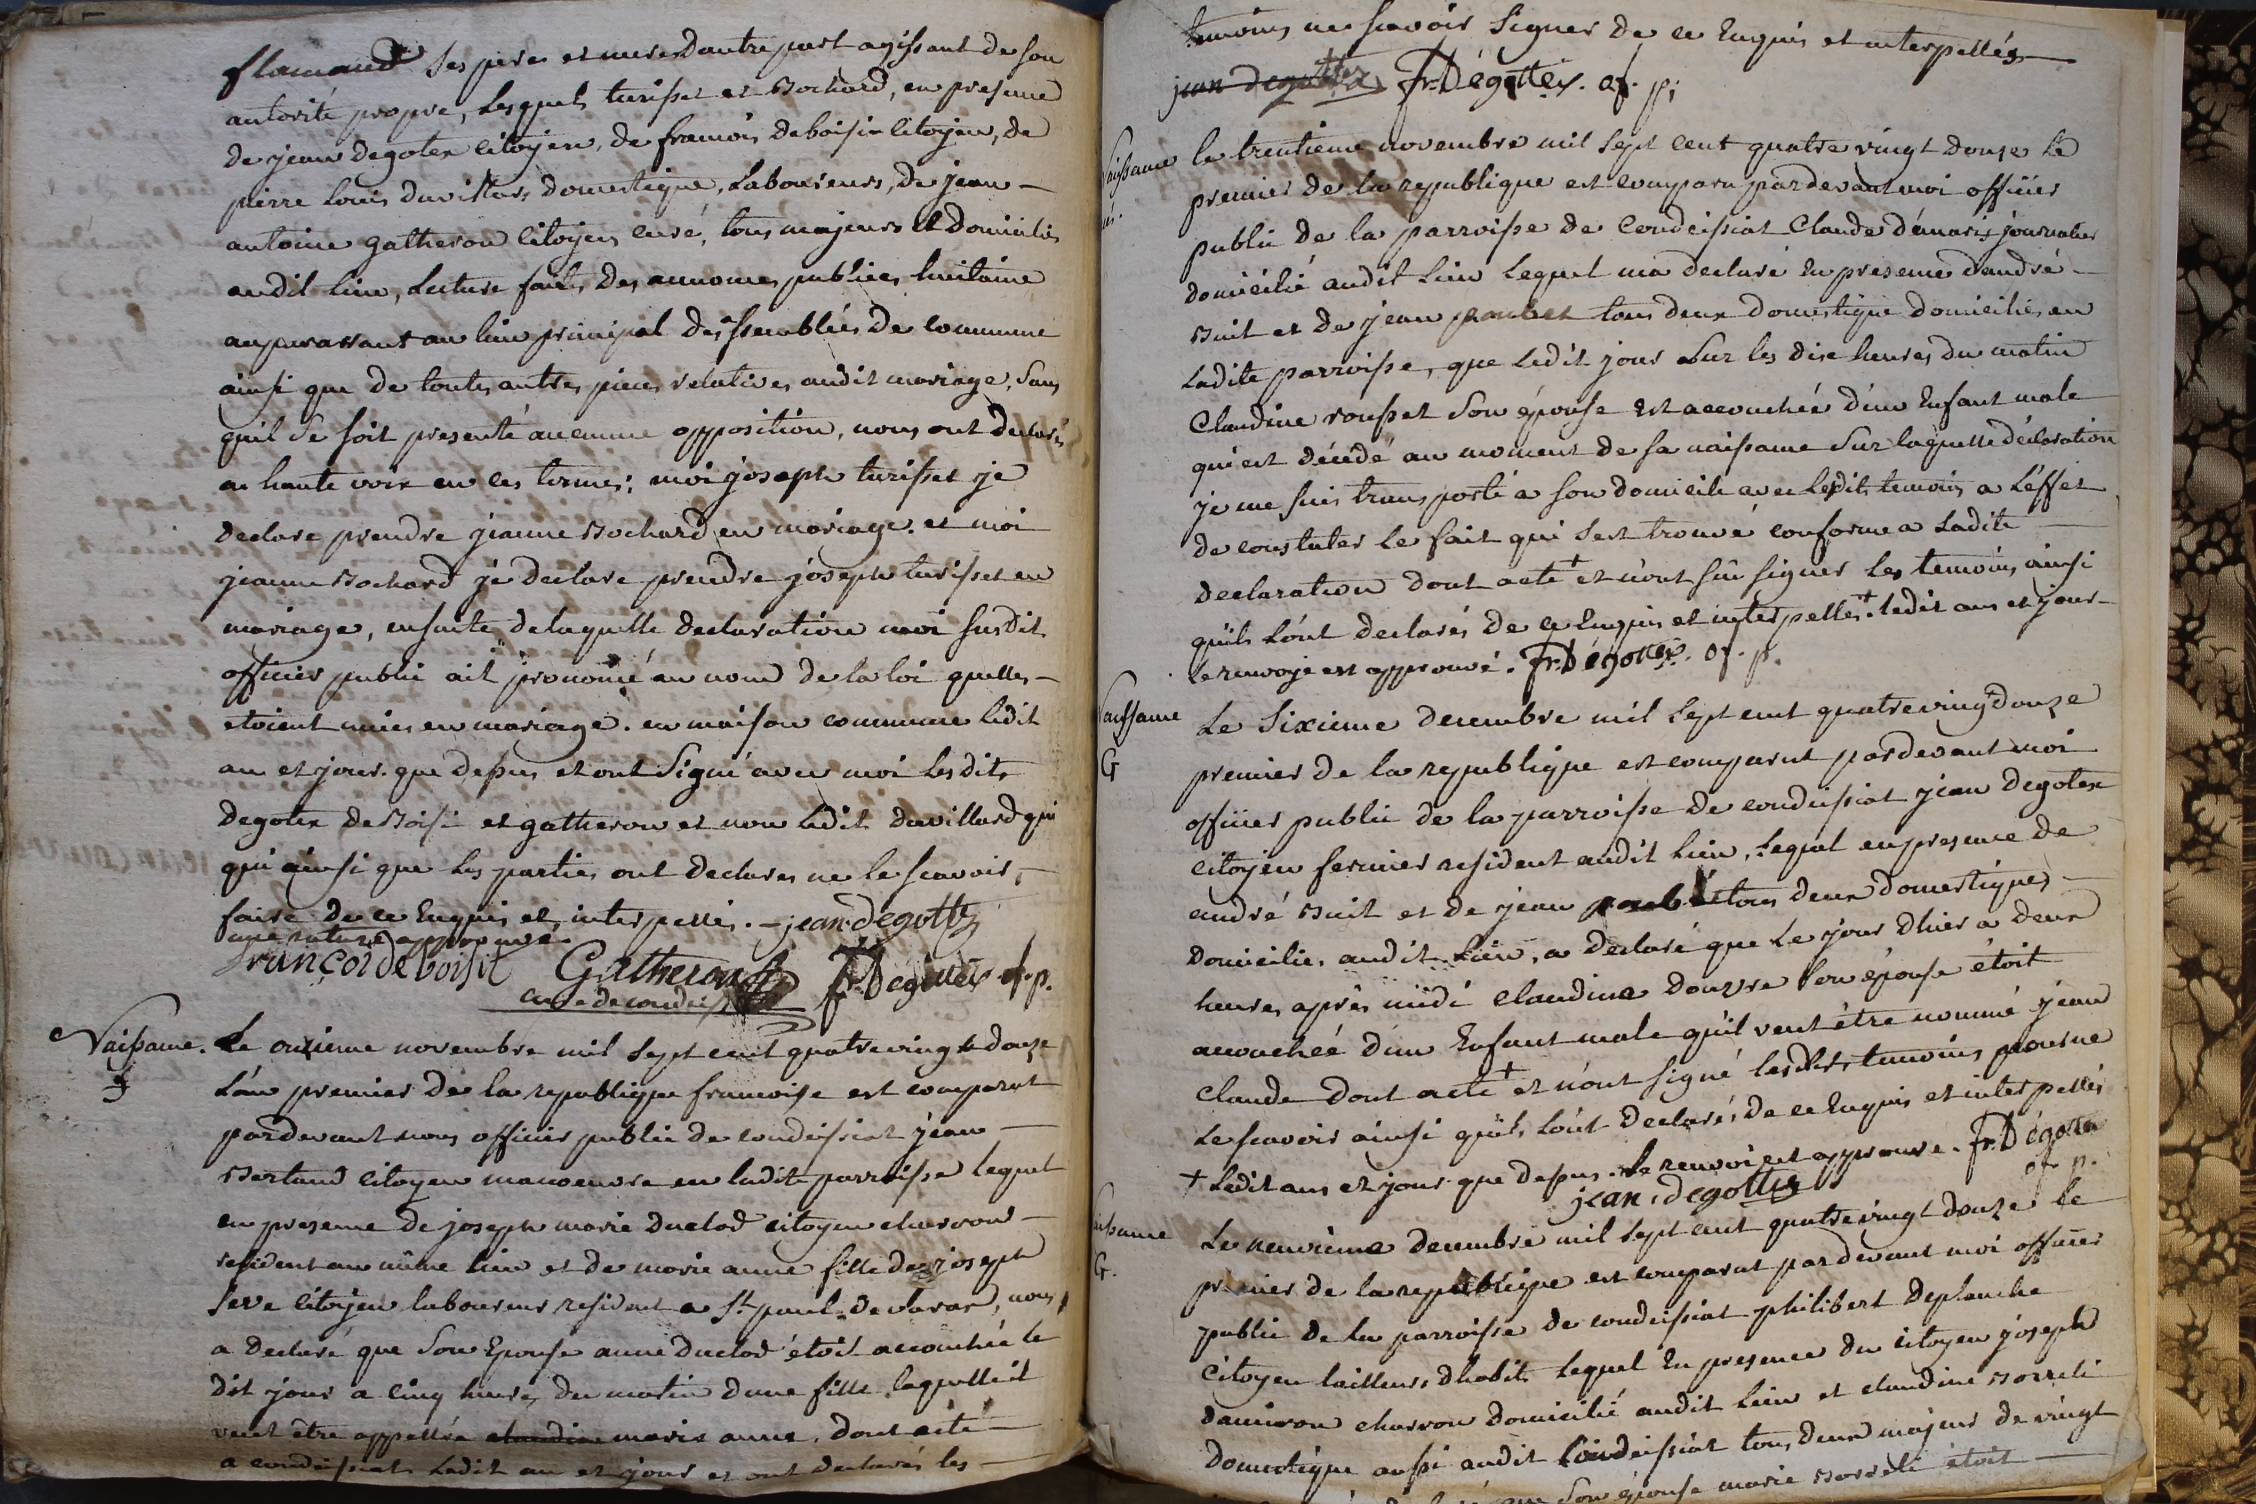 flamand ses pere et mere dautre part agissant de son
autorité propre, lesquels turisset et Bochard, en presence
de jean degotex citoyen, de francois deboisie citoyen, de
pierre louis duvillard domestique, laboureurs, de jean
antoine gatheron citoyen curé, tous majeurs et domiciliés
audit lieu, lecture faite des annonces publiees huitaine
auparavant au lieu principal des assemblées de commune
ainsi que de toutes autres pieces relatives audit mariage, sans
quil se soit presenté aucunne opposition, nous ont declarés
a haute voix en ces termes; moi joseph turisset je
declare prendre jeanne Bochard en mariage. et moi
jeanne Bochard je declare prendre joseph turisset en
mariage, ensuite de laquelle declaration moi susdit
officier public ait prononcé au nom de la loi quelles
etoient unies en mariage. en maison commune ledit
an et jour que dessus et ont signé avec moi lesdits
degotex deBoisi et gatheron et non ledit duvillard qui
qui ainsi que les parties ont declarés ne le scavoir,
faire de ce Enquis et interpellés. jean degottex
une rature approuvé
françoi de boisit Gatheron fr. Degottex of. p.
curé de condeissiat
Naissance. Le onzieme novembre mil sept cent quatre vingt douze
L'an premier de la republique francoise est comparut
pardevant nous officier public de condeissiat jean
Bertand citoyen manoeuvre en ladite parroisse lequel
en presence de joseph marie duclod citoyen charron
resident au même lieu et de marie anne fille de joseph
seve citoyen laboureur resident a St paul de varax, nous
a declaré que son Epouse anne duclod étoit accouchée le
dit jour a cinq heures du matin dune fille laquelle il
veut être appellée claudine marie anne, dont acte
a condeissiat ledit an et jour et ont declarés les
temoins ne scavoir signer de ce Enquis et interpellés
jean degottex fr. Dégottex. of. p;
Naissance le trentieme novembre mil sept cent quatre vingt douze le
premier de la republique est comparu pardevant moi officier
public de la parroisse de Condeissiat Claude démaris journalier
domicilié audit lieu lequel ma declaré En presence dandré
Buit et de jean poubet tous deux domestique domiciliés en
ladite parroisse, que ledit jour sur les dix heures du matin
Claudine rousset son épouse est accouchée d'un Enfant male
qui est décédé au moment de sa naissance sur laquelle déclaration
je me suis transporté a son domicile avec lesdits temoins a l'effet
de constater le fait qui s'est trouvé conforme a ladite
declaration dont acte + et n'ont sûe signer les temoins ainsi
quils l'ont declarés de ce Enquis et interpellés. + ledit ans et jour
le renvoye est approuvé. fr. Dégottex. of. p.
Naissance Le sixieme decembre mil sept cent quatre vingt douze
G premier de la republique est comparut pardevant moi
officier public de la parroisse de condeissiat jean degotex
citoyen fermier resident audit lieu, lequel en presence de
andré Buit et de jean tous deux domestiques
domiciliés audit lieu, a declaré que le jour d'hier a deux
heures après midi claudine son épouse étoit
accouchée d'un Enfant male qu'il veut être nommé jean
claude dont acte + et n'ont signé lesdits temoins pour ne
le scavoir ainsi quils l'ont declarés de ce Enquis et interpellés
+ Ledit ans et jour que dessus. le renvoi est approuvé. fr. Dégottex
jean degottex of. p.
Naissance Le neuvieme decembre mil sept cent quatre vingt douze le
G. premier de la republique est comparut pardevant moi officier
public de la parroisse de condeissiat philibert deplanche
citoyen tailleurs d'habits lequel En presence du citoyen joseph
damiron charron domicilié audit lieu et claudine Borreli
domestique aussi audit Condeissiat tous deux majeurs de vingt
son épouse marie Borreli étoit